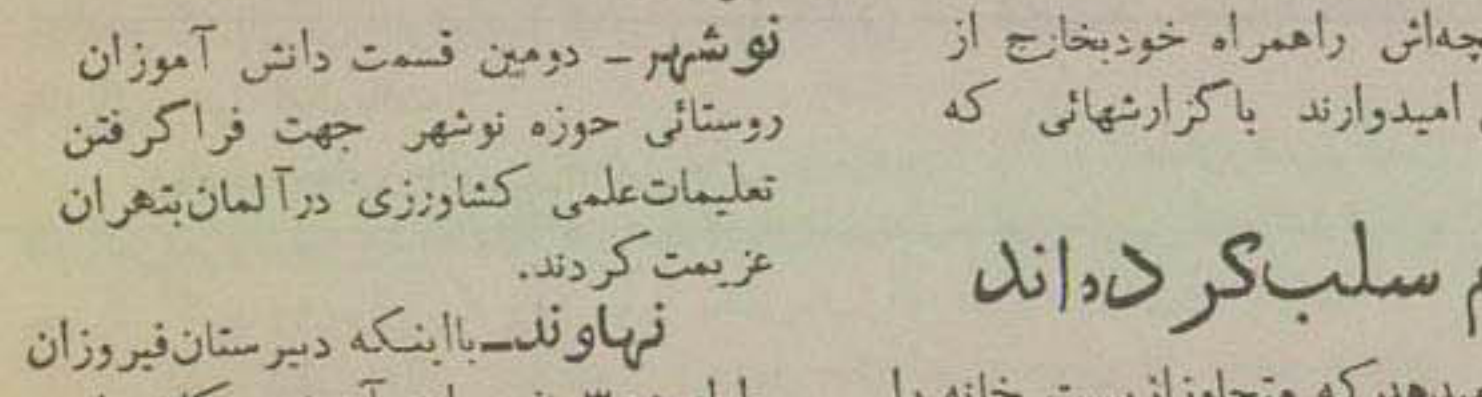 چه‌اش راهمراه خودبخارج از
امیدوارند باگزارشهائی که
سلب‌کرده‌اند
که متجاوزاز خانه
نوشهر ـ دومین قسمت دانش آموزان
روستائی حوزه نوشهر جهت فراگرفتن
تعلیمات‌علمی کشاورزی درآلمان‌بتهران
عزیمت کردند.
نهاوندـبااینکه دبیرستان‌فیروزان